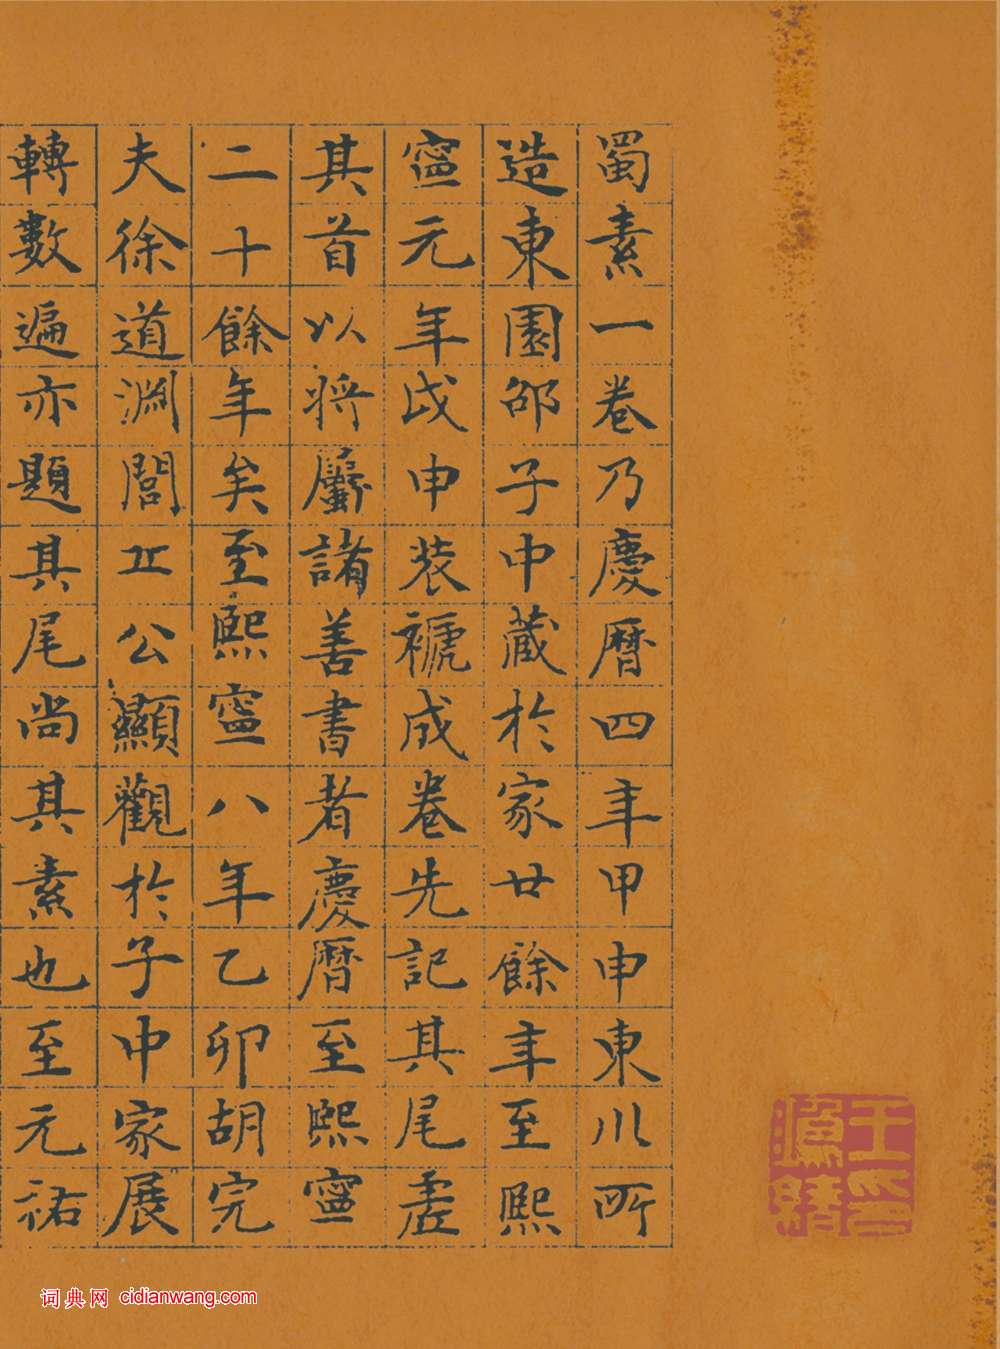 蜀素一卷乃慶曆四年甲申東川所
造東園邵子中藏於家廿餘年至熙
寧元年戊申裝褫成卷先記其尾虛
其首以將屬諸善書者慶曆至熙寧
二十餘年矣至熙寧八年乙卯胡完
夫徐道淵閭丘公顯觀於子中家展
轉數遍亦題其尾尚其素也至元祐
词典网 cidianwang.com